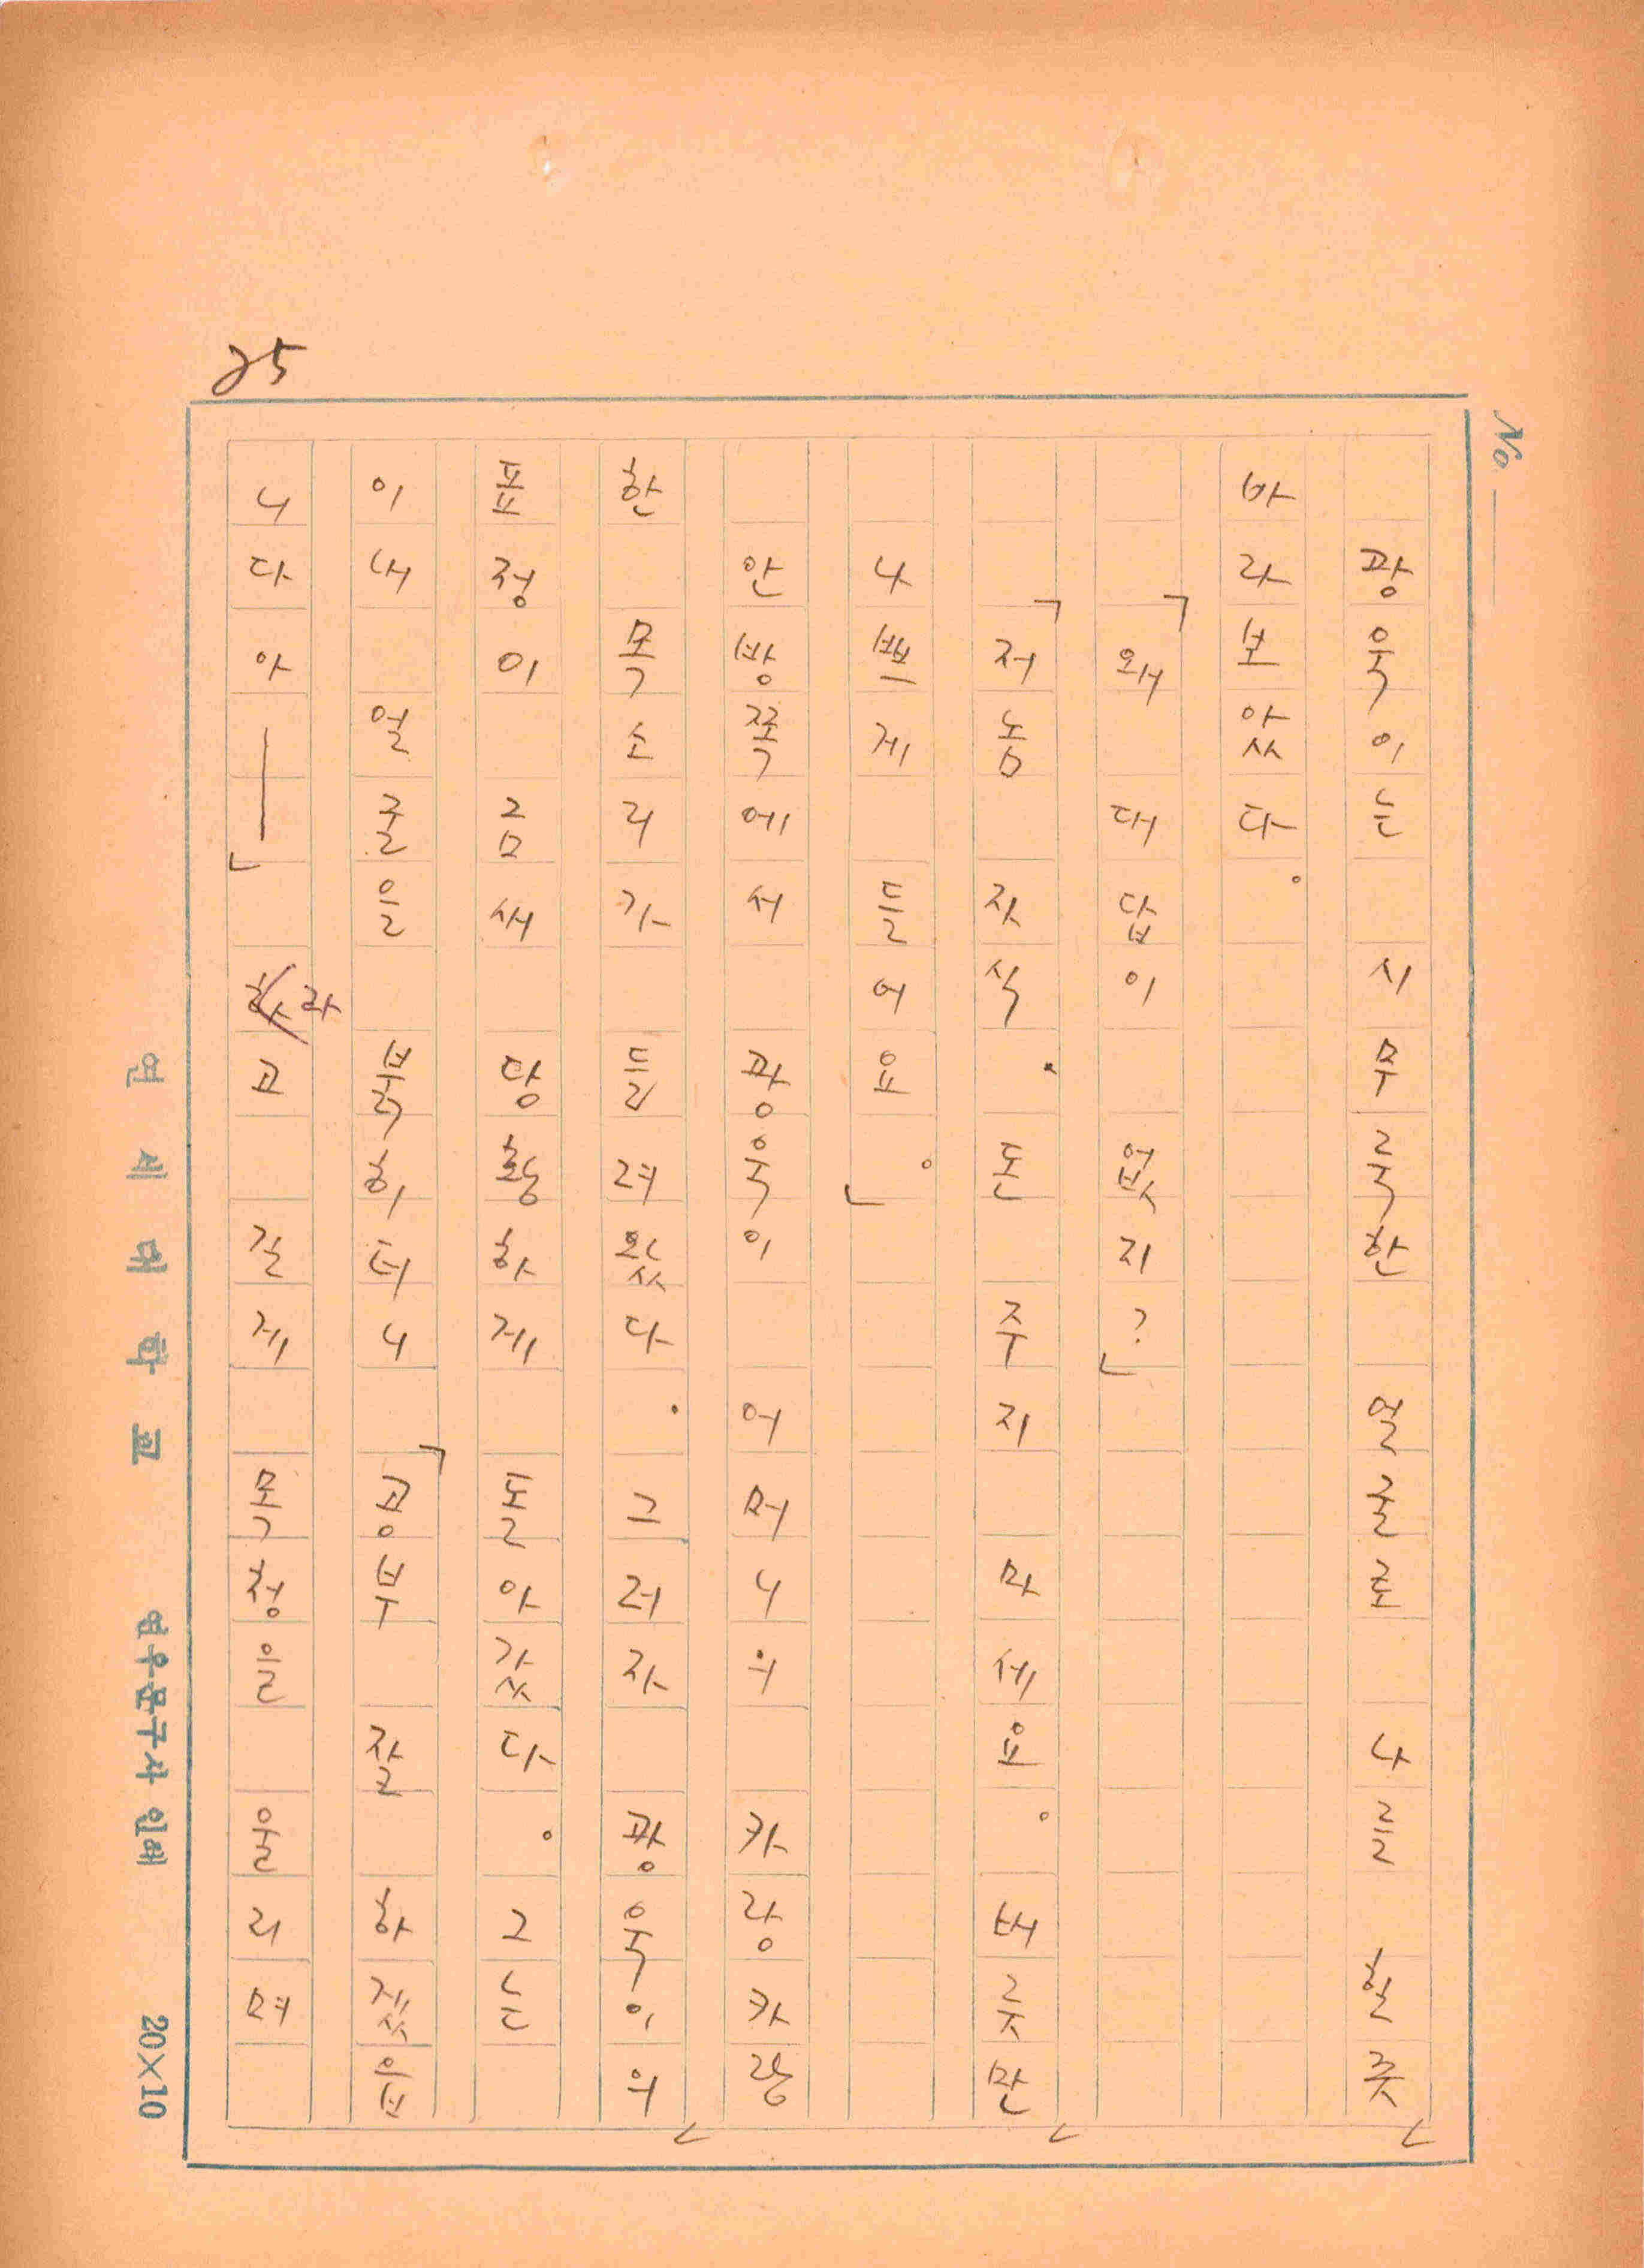 No
25
광욱이는 시무룩한 얼굴로 나를
바라보았다。
「왜 대답이 없지?」
「저놈 자식. 돈 주지 마세요。버릇만
나쁘게 들어요。」
안방쪽에서 광욱이 어머니의 카랑카랑
한 목소리가 들려왔다. 그러자 광욱이의
표정이 금새 당황하게 돌아갔다。그는
이내 얼굴을 붉히더니 「공부 잘 하겠읍
니다아──」 라고 길게 목청을 울리며
연세대학교 연우문구사 인쇄 20×10